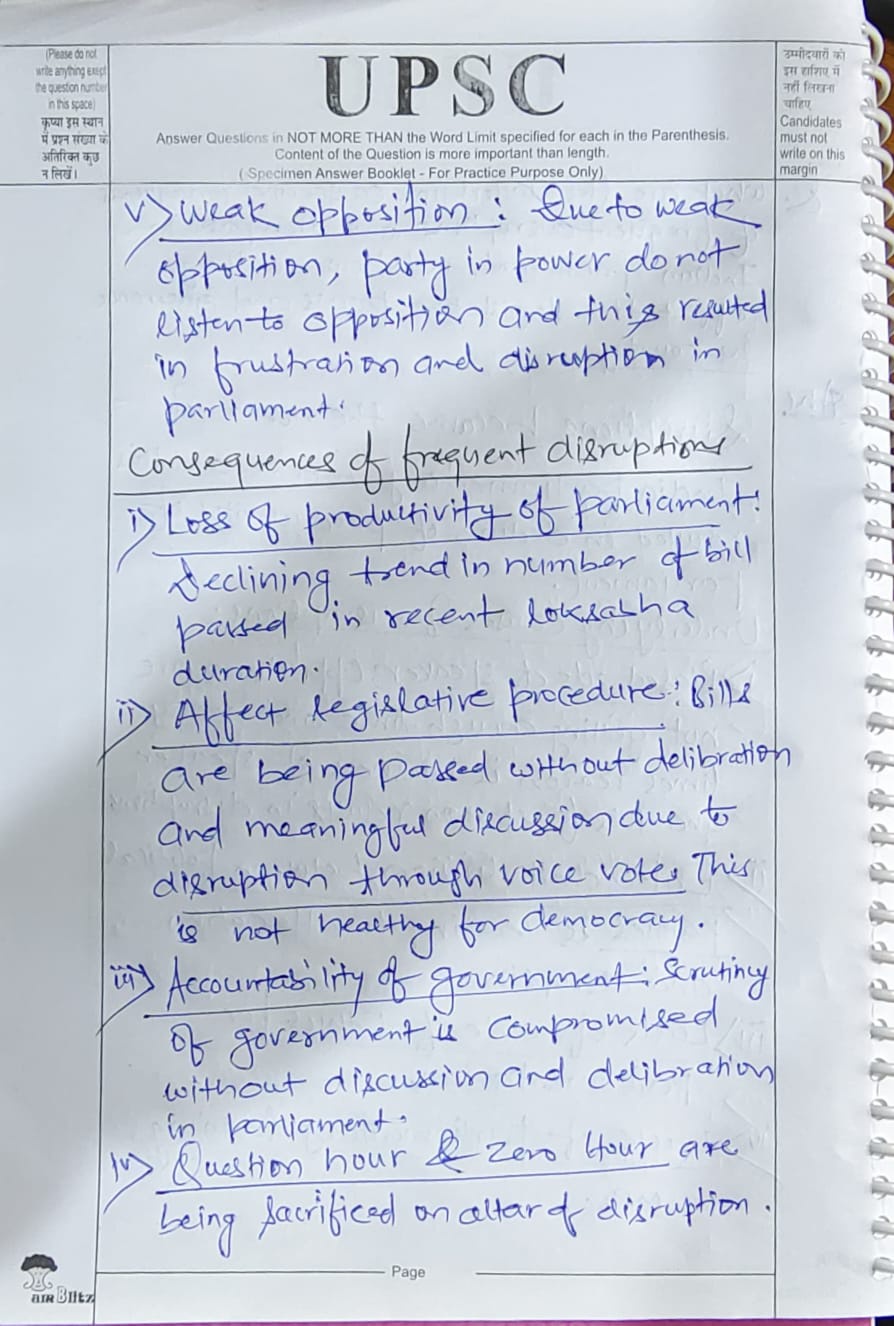 (Please do not
write anything exept
the question number
in this space)
कृप्या इस स्थान
में प्रश्न संख्या के
अतिरिक्त कुछ
न लिखें।
UPSC
Answer Questions in NOT MORE THAN the Word Limit specified for each in the Parenthesis.
Content of the Question is more important than length.
( Specimen Answer Booklet - For Practice Purpose Only)
उम्मीदवारों को
इस हाशिए में
नहीं लिखना
चाहिए
Candidates
must not
write on this
margin
v) Weak opposition : Due to weak
opposition, party in power do not
listen to opposition and this resulted
in frustration and disruption in
parliament.
Consequences of frequent disruptions
i) Loss of productivity of parliament:
Declining trend in number of bill
passed in recent loksabha
duration.
ii) Affect legislative procedure: Bills
are being passed without delibration
and meaningful discussion due to
disruption through voice vote. This
is not healthy for democracy.
iii) Accountability of government: Scrutiny
of government is compromised
without discussion and delibration
in parliament.
iv) Question hour & Zero Hour are
being sacrificed on altar of disruption.
Page
AIR Blitz